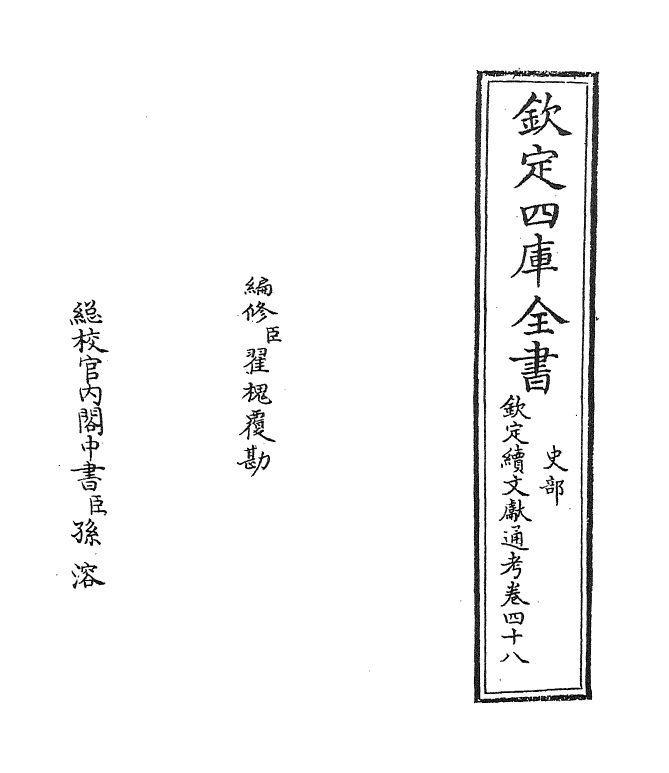 欽定四庫全書
史部
欽定續文獻通考卷四十八
編修臣翟槐覆勘
總校官內閣中書臣孫溶